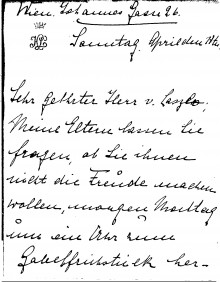 Wien, Johannes Gasse 26.
Sonntag, April den 14te
Sehr geehrter Herr v. Laszlo,
Meine Eltern lassen Sie
fragen, ob Sie ihnen
nicht die Freude machen
wollen, morgen Montag
um ein Uhr zum
Gabelfrühstück her-